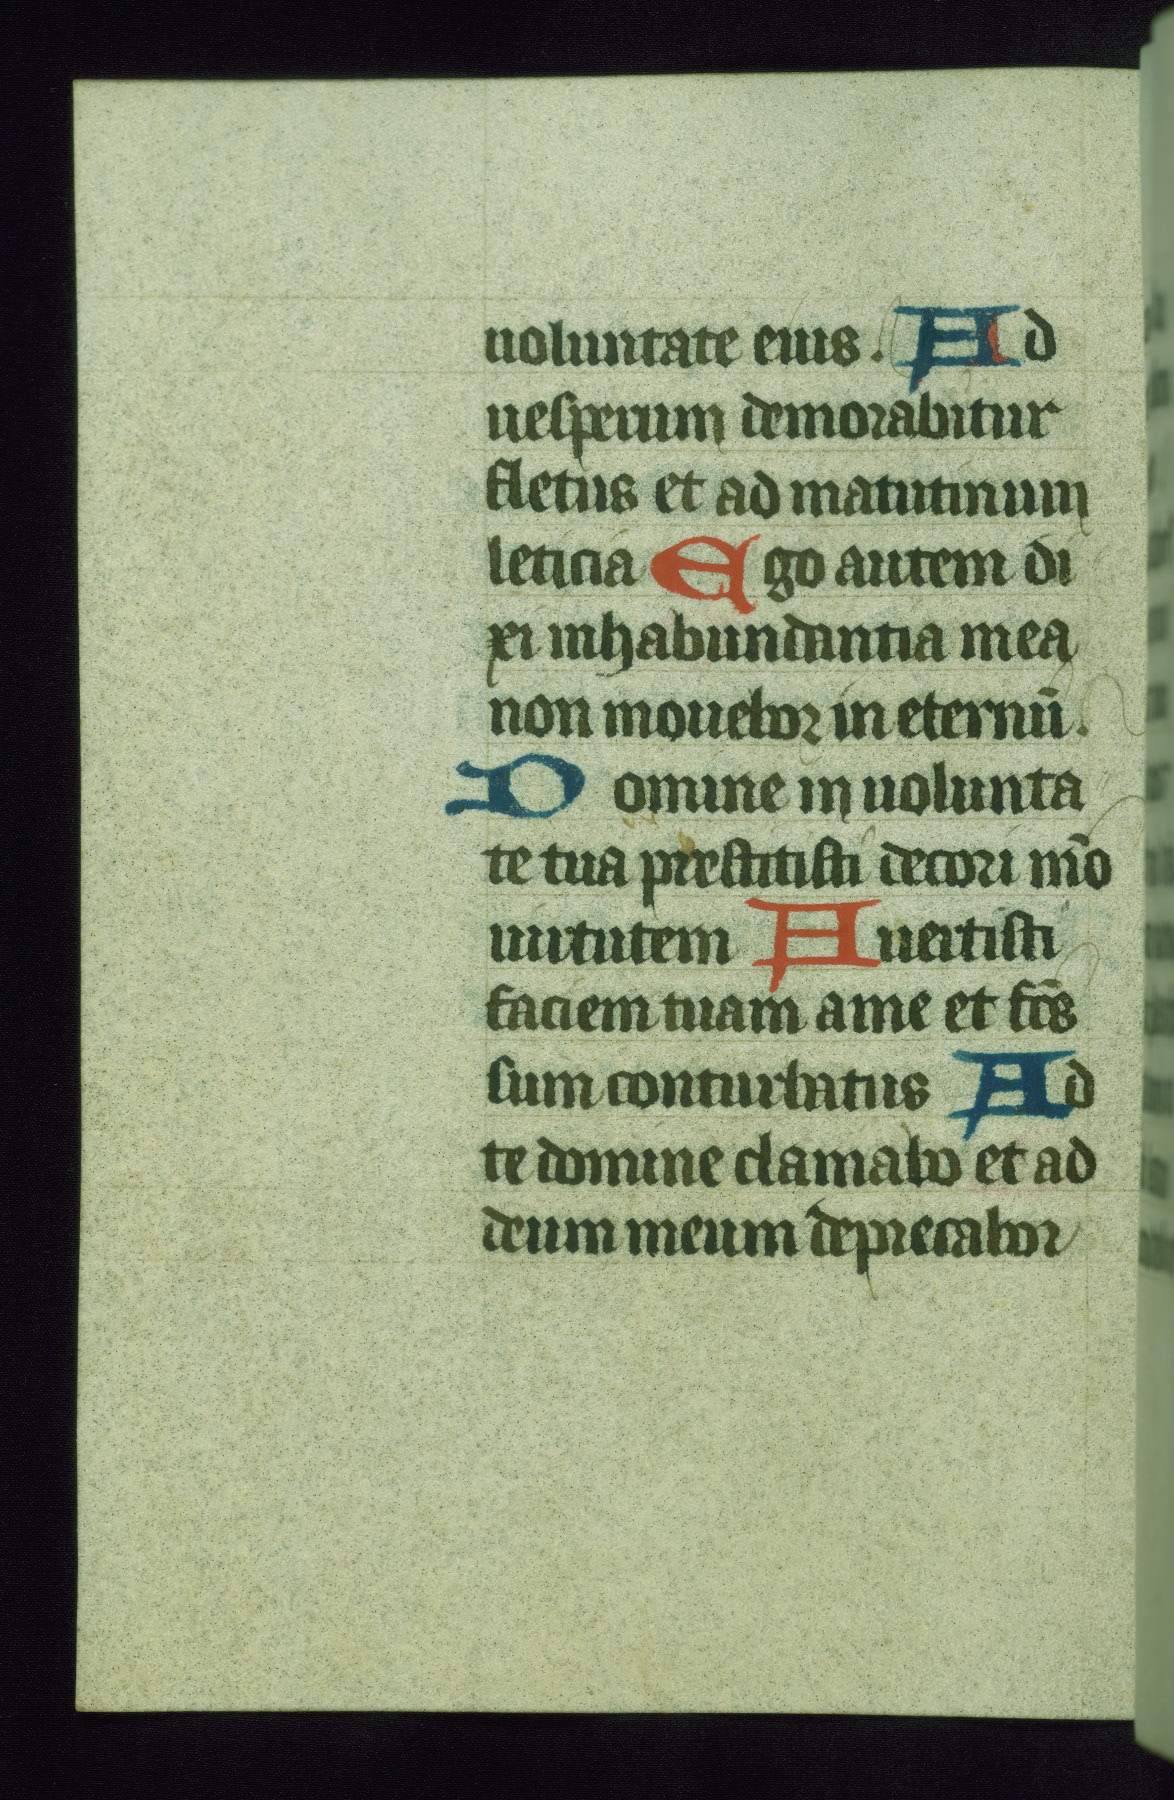 uoluntate eius. Ad
uesperum demorabitur
fletus et ad matutinum
leticia Ego autem di
xi inhabundantia mea
non mouebor in eternū.
Domine in uolunta
te tua prestitisti decori mō
uirtutem Auertisti
faciem tuam a me et fc̄s
sum conturbatus Ad
te domine clamabo et ad
deum meum deprecabor